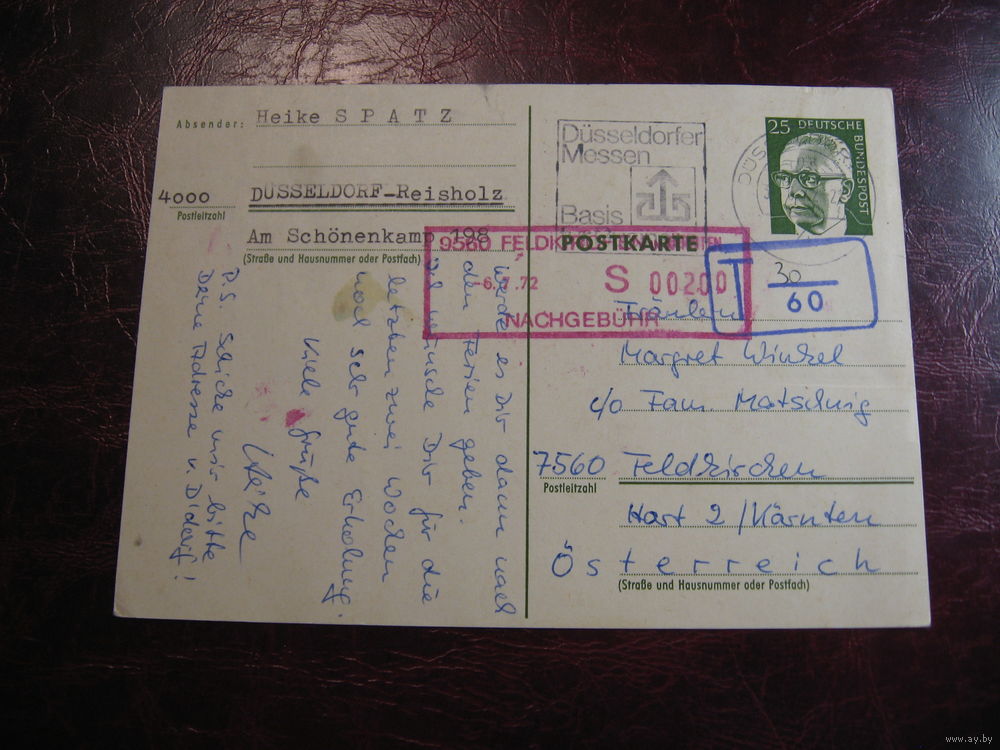 Absender: Heike S P A T Z
4000 DÜSSELDORF-Reisholz
Postleitzahl
Am Schönenkamp 198
(Straße und Hausnummer oder Postfach)
Werde es Dir dann nach
den Ferien geben.
Ich wünsche Dir für die
letzten zwei Wochen
noch sehr gute Erholung.
Viele Grüße
Heike
P.S. Schicke mir bitte
Deine Adresse v. Didorf!
Düsseldorfer
Messen
Basis
25 DEUTSCHE
BUNDESPOST
POSTKARTE
9560 FELDK
-6.7.72 S 00200
NACHGEBÜHR
T 30
60
Fräulein
Margret Winkel
c/o Fam. Matschnig
7560 Feldkirchen
Postleitzahl
Hart 2 / Kärnten
Österreich
(Straße und Hausnummer oder Postfach)
www.ay.by